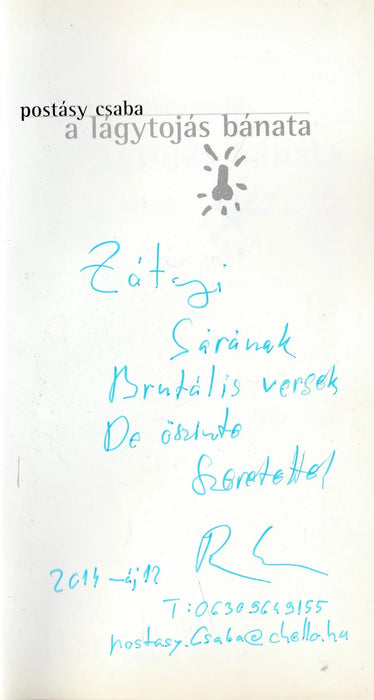 postásy csaba
a lágytojás bánata
Sárának
Brutális versek
De őszinte
Szeretettel
2014
T: 06309649155
postasy.Csaba@chello.hu